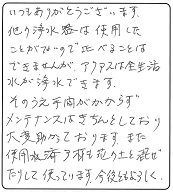 いつもありがとうございます。
他の浄水器は使用した
ことがないので比べることは
できませんが、アクアスは全生活
水が浄水できます。
そのうえ手間がかからず
メンテナンスはきちんとしており
大変助かっております。また
使用ずみろ材も花の土と混ぜ
たりして使っています。今後もよろしく。